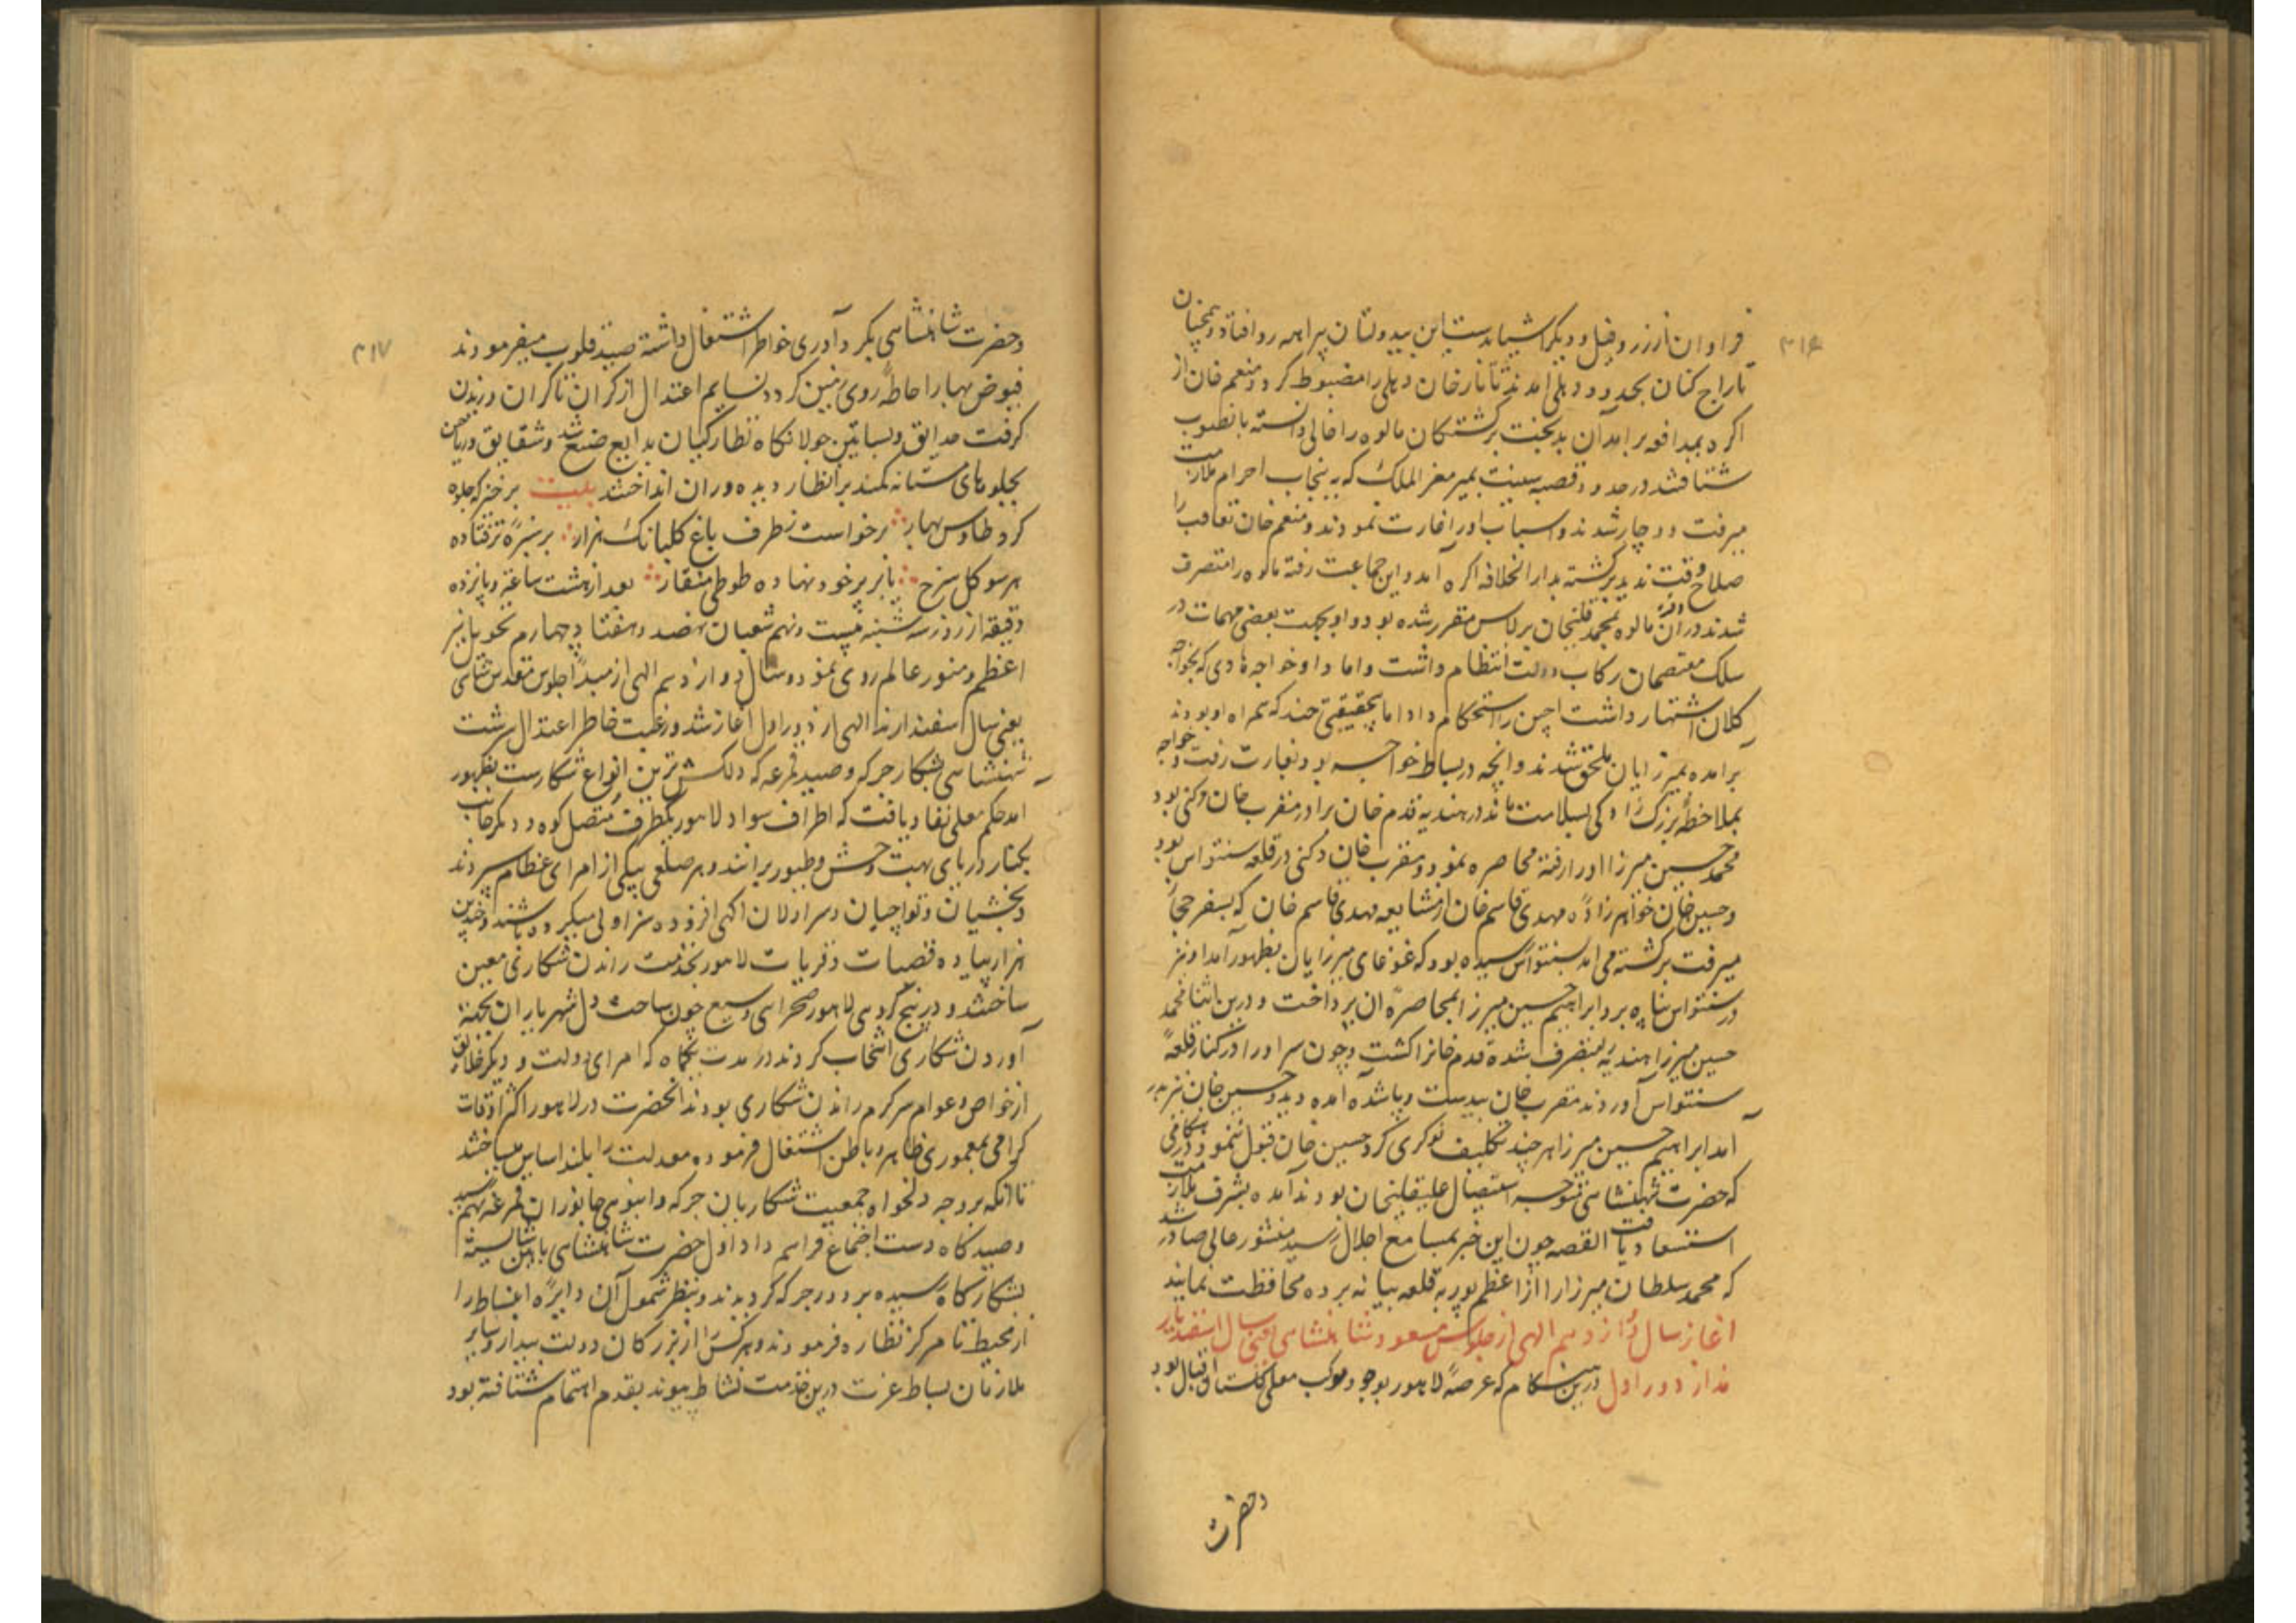 ۳۱۶
فراوان از زر و فیل و دیگر اشیا بدست این بیدولتان پراهمه رو افتاد و همچنان
تاراج کنان بحدود دهلی آمدند تاتارخان دهلی را مضبوط کرد و منعم خان از
اگره بمدافعه برآمد آن بدبخت برگشتگان مالوه را خالی دانسته بانصوب
شتافتند در حدود قصبه سینت بمیر معز الملک که به پنجاب احرام ملازمت
میرفت دوچار شدند و اسباب او را غارت نمودند و منعم خان تعاقب را
صلاح وقت ندید برگشته بدار الخلافه اگره آمد و این جماعت رفته مالوه را متصرف
شدند دران مالوه بمحمد قلیخان برلاس مقرر شده بود و او بجهت بعضی مهمات در
سلک معتصمان رکاب دولت انتظام داشت و اماد او خواجه هادی که بخواجه
کلان اشتهار داشت اجین را استحکام داد اما بیحقیقتی چند که همراه او بودند
برآمده بمیرزایان ملحق شدند و آنچه در بساط خواجه بود بغارت رفت و خواجه
بملاحظهٔ بزرگ زادگی بسلامت ماند در هندیه قدم خان برادر مقرب خان دکنی بود
محمد حسین میرزا او را رفته محاصره نمود و مقرب خان دکنی در قلعه سنتواس بود
و حسین خان خواهرزادهٔ مهدی قاسم خان از مشایعه مهدی قاسم خان که بسفر حجاز
میرفت برگشته می آمد بسنتواس رسیده بود که غوغای میرزایان بظهور آمد او نیز
در سنتواس پناه برد ابراهیم حسین میرزا بمحاصرهٔ آن پرداخت و درین اثنا محمد
حسین میرزا هندیه را متصرف شده قدم خانرا کشت و چون سر او را در کنار قلعهٔ
سنتواس آوردند مقرب خان بیدست و پا شده آمده دید و حسین خان نیز بدر
آمد ابراهیم حسین میرزا هرچند تکلیف نوکری کرد حسین خان قبول ننمود و در هنگامی
که حضرت شهنشاهی متوجه استیصال علیقلیخان بودند آمده بشرف ملازمت
استسعاد یافت القصه چون این خبر بمسامع اجلال رسید منشور عالی صادر شد
که محمد سلطان میرزا را از اعظم پور به قلعه بیانه برده محافظت نمایند
اغاز سال دوازدهم الهی از جلوس مسعود شاهنشاهی یعنی سال اسفندیار
مذار دور اول درین هنگام که عرصهٔ لاهور بوجود موکب معلی گلستان اقبال بود
وحضرت
۳۱۷
وحضرت شاهنشاهی بگرد آوری خواطر اشتغال داشته صید قلوب میفرمودند
فیوض بهار احاطهٔ روی زمین کرد و نسایم اعتدال از کران تا کران وزیدن
گرفت حدایق و بساتین جولانگاه نظارگیان بدایع صنع شد و شقایق و ریاحین
بجلوهای مستانه کمند بر انظار دیده وران انداختند بیت برخیز که جلوه
کرد طاوس بهار برخواست ز طرف باغ گلبانگ هزار بر سبزهٔ تر فتاده
هر سو گل سرخ یا بر پر خود نهاده طوطی منقار بعد از هشت ساعت و پانزده
دقیقه از روز سه شنبه بیست و نهم شعبان نهصد و هفتاد و چهارم تحویل نیر
اعظم و منور عالم روی نمود و سال دوازدهم الهی از مبدأ جلوس مقدس شاهنشاهی
یعنی سال اسفندارمذ الهی از دور اول آغاز شد و رغبت خاطر اعتدال سرشت
شهنشاهی بشکار جرگه و صید قمرغه که دلکش ترین انواع شکارست بظهور
آمد حکم معلی نفاد یافت که اطراف سواد لاهور یکطرف متصل کوه و دیگر جانب
بکنار دریای بهت وحش و طیور برانند و هر ضلعی بیکی از امرای عظام سپردند
و بخشیان و تواچیان و سزاولان آگهی افزوده سزاولی میکرده باشند و چندین
هزار پیاده قصبات و قریات لاهور بخدمت راندن شکار نی معین
ساختند و در پنج کروهی لاهور صحرای وسیع چون ساحت دل شهریاران بجهة
آوردن شکاری انتخاب کردند در مدت یکماه که امرای دولت و دیگر خلایق
از خواص و عوام سرگرم راندن شکاری بودند آنحضرت در لاهور اکثر اوقات
گرامی بمعموری ظاهر و باطن اشتغال فرموده معدلت را بلند اساس میساختند
تا آنکه بر وجه دلخواه جمعیت شکاریان جرگه و انبوهی جانوران قمرغه بهم رسید
و صید گاه دست اجتماع فراهم داد اول حضرت شاهنشاهی بائین شایسته
بشکارگاه رسیده بر دور جرگه گردیدند و بنظر شمول آن دایرهٔ انبساط را
از محیط تا مرکز نظاره فرمودند و هرکس را از بزرگان دولت بیدار و سایر
ملازمان بساط عزت درین خدمت نشاط پیوند بقدم اهتمام شتافته بود